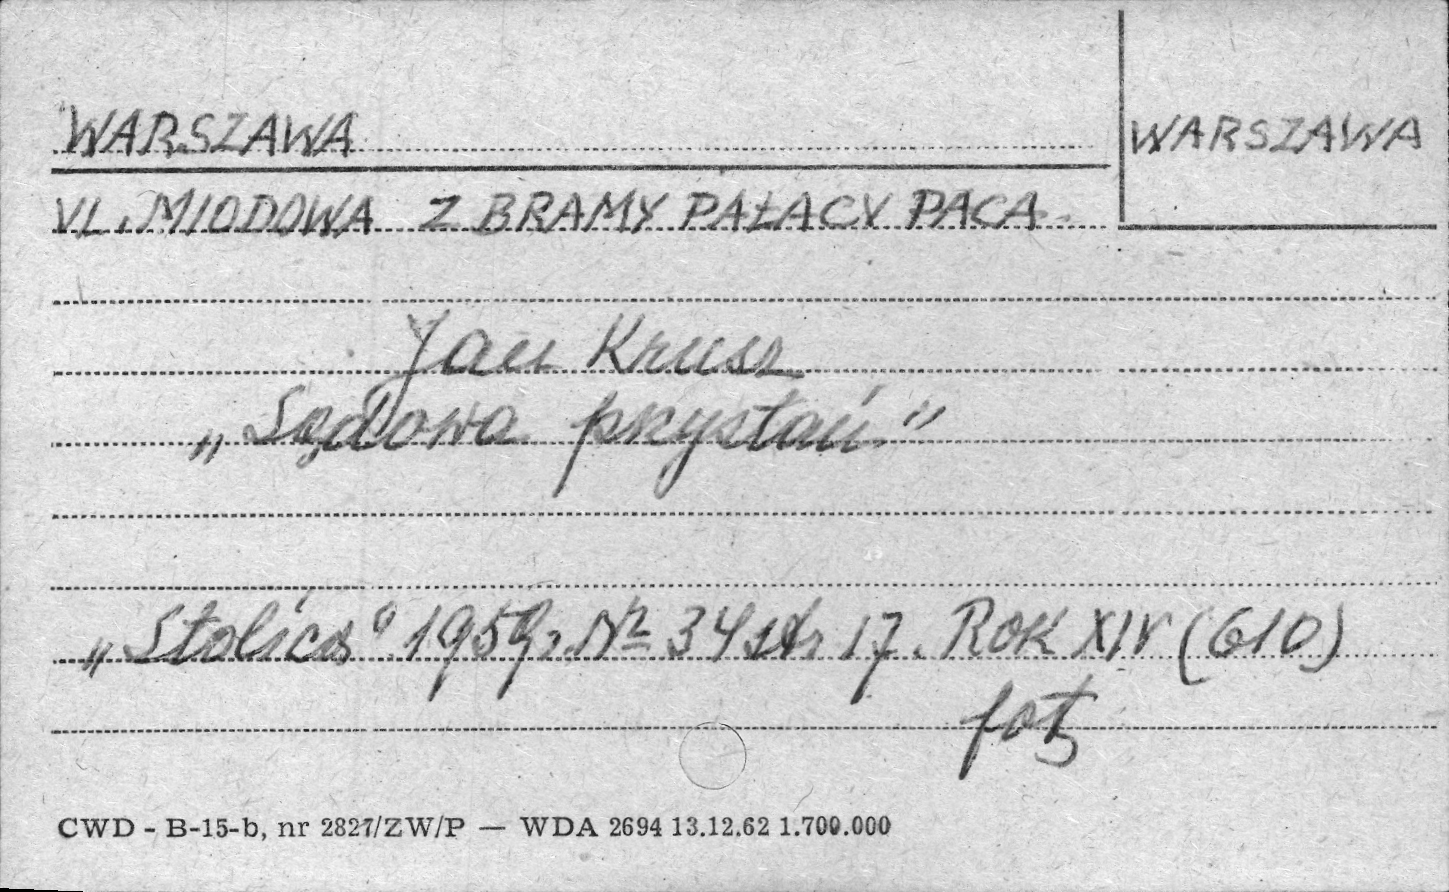 WARSZAWA
WARSZAWA
UL. MIODOWA Z BRAMY PAŁACU PACA
Jan Krusz
„Sądowa przystań”
„Stolica” 1959r. Nr 34 str 17. ROK XIV (610)
fot
CWD - B-15-b, nr 2827/ZW/P — WDA 2694 13.12.62 1.700.000